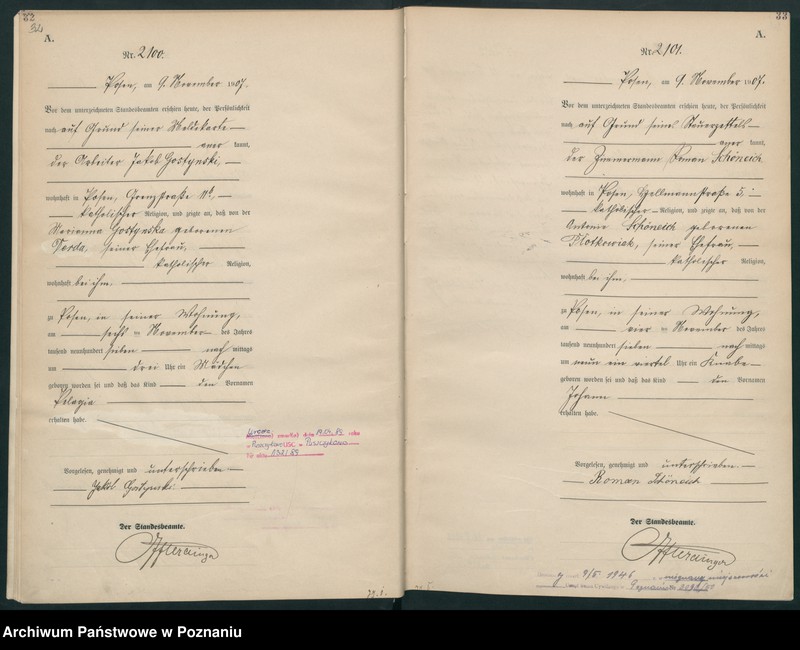 32
34
A.
Nr. 2100.
Posen, am 9. November 1907.
Vor dem unterzeichneten Standesbeamten erschien heute, der Persönlichkeit
nach auf Grund seiner Meldekarte
aner kannt,
der Arbeiter Jakob Gostynski,
wohnhaft in Posen, Grenzstraße
katholischer Religion, und zeigte an, daß von der
Marianna Gostynska geborenen
seiner Ehefrau,
katholischer Religion,
wohnhaft bei ihm.
zu Posen, in seiner Wohnung,
am sechs ten November des Jahres
tausend neunhundert sieben nach mittags
um drei Uhr ein Mädchen
geboren worden sei und daß das Kind den Vornamen
Pelagia
erhalten habe.
Vorgelesen, genehmigt und unterschrieben
Jakob Gostynski
Der Standesbeamte.
33
A.
Nr. 2101.
Posen, am 9. November 1907.
Vor dem unterzeichneten Standesbeamten erschien heute, der Persönlichkeit
nach auf Grund seines Steuerzettels
aner kannt,
der Zimmermann Roman Schöneich
wohnhaft in Posen, 5,
katholischer Religion, und zeigte an, daß von der
Antonie Schöneich geborenen
seiner Ehefrau,
katholischer Religion,
wohnhaft bei ihm,
zu Posen, in seiner Wohnung,
am vier ten November des Jahres
tausend neunhundert sieben nach mittags
um neun ein viertel Uhr ein Knabe
geboren worden sei und daß das Kind den Vornamen
Johann
erhalten habe.
Vorgelesen, genehmigt und unterschrieben
Roman Schöneich
Der Standesbeamte.
Archiwum Państwowe w Poznaniu